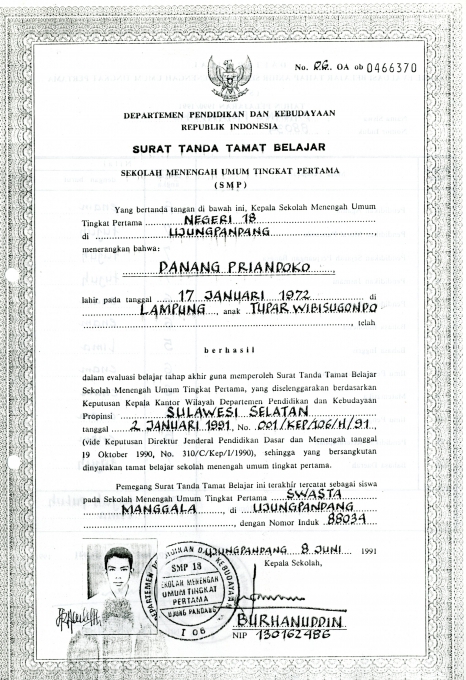 No. OA ob 0466370
DEPARTEMEN PENDIDIKAN DAN KEBUDAYAAN
REPUBLIK INDONESIA
SURAT TANDA TAMAT BELAJAR
SEKOLAH MENENGAH UMUM TINGKAT PERTAMA
(SMP)
Yang bertanda tangan di bawah ini, Kepala Sekolah Menengah Umum
Tingkat Pertama NEGERI 18
di UJUNGPANDANG
menerangkan bahwa:
DANANG PRIANDOKO
lahir pada tanggal 17 JANUARI 1972 di
LAMPUNG, anak TUPAR WIBISUGONDO
, telah
berhasil
dalam evaluasi belajar tahap akhir guna memperoleh Surat Tanda Tamat Belajar
Sekolah Menengah Umum Tingkat Pertama, yang diselenggarakan berdasarkan
Keputusan Kepala Kantor Wilayah Departemen Pendidikan dan Kebudayaan
Propinsi SULAWESI SELATAN
tanggal 2 JANUARI 1991, No. 001/KEP/106/H/91
(vide Keputusan Direktur Jenderal Pendidikan Dasar dan Menengah tanggal
19 Oktober 1990, No. 310/C/Kep/I/1990), sehingga yang bersangkutan
dinyatakan tamat belajar sekolah menengah umum tingkat pertama.
Pemegang Surat Tanda Tamat Belajar ini terakhir tercatat sebagai siswa
pada Sekolah Menengah Umum Tingkat Pertama SWASTA
MANGGALA, di UJUNGPANDANG
, dengan Nomor Induk 88034
UJUNGPANDANG 8 JUNI 1991
Kepala Sekolah,
DEPARTEMEN PENDIDIKAN DAN KEBUDAYAAN
SMP 18
SEKOLAH MENENGAH
UMUM TINGKAT
PERTAMA
UJUNG PANDANG
I 06
BURHANUDDIN
NIP 130162486